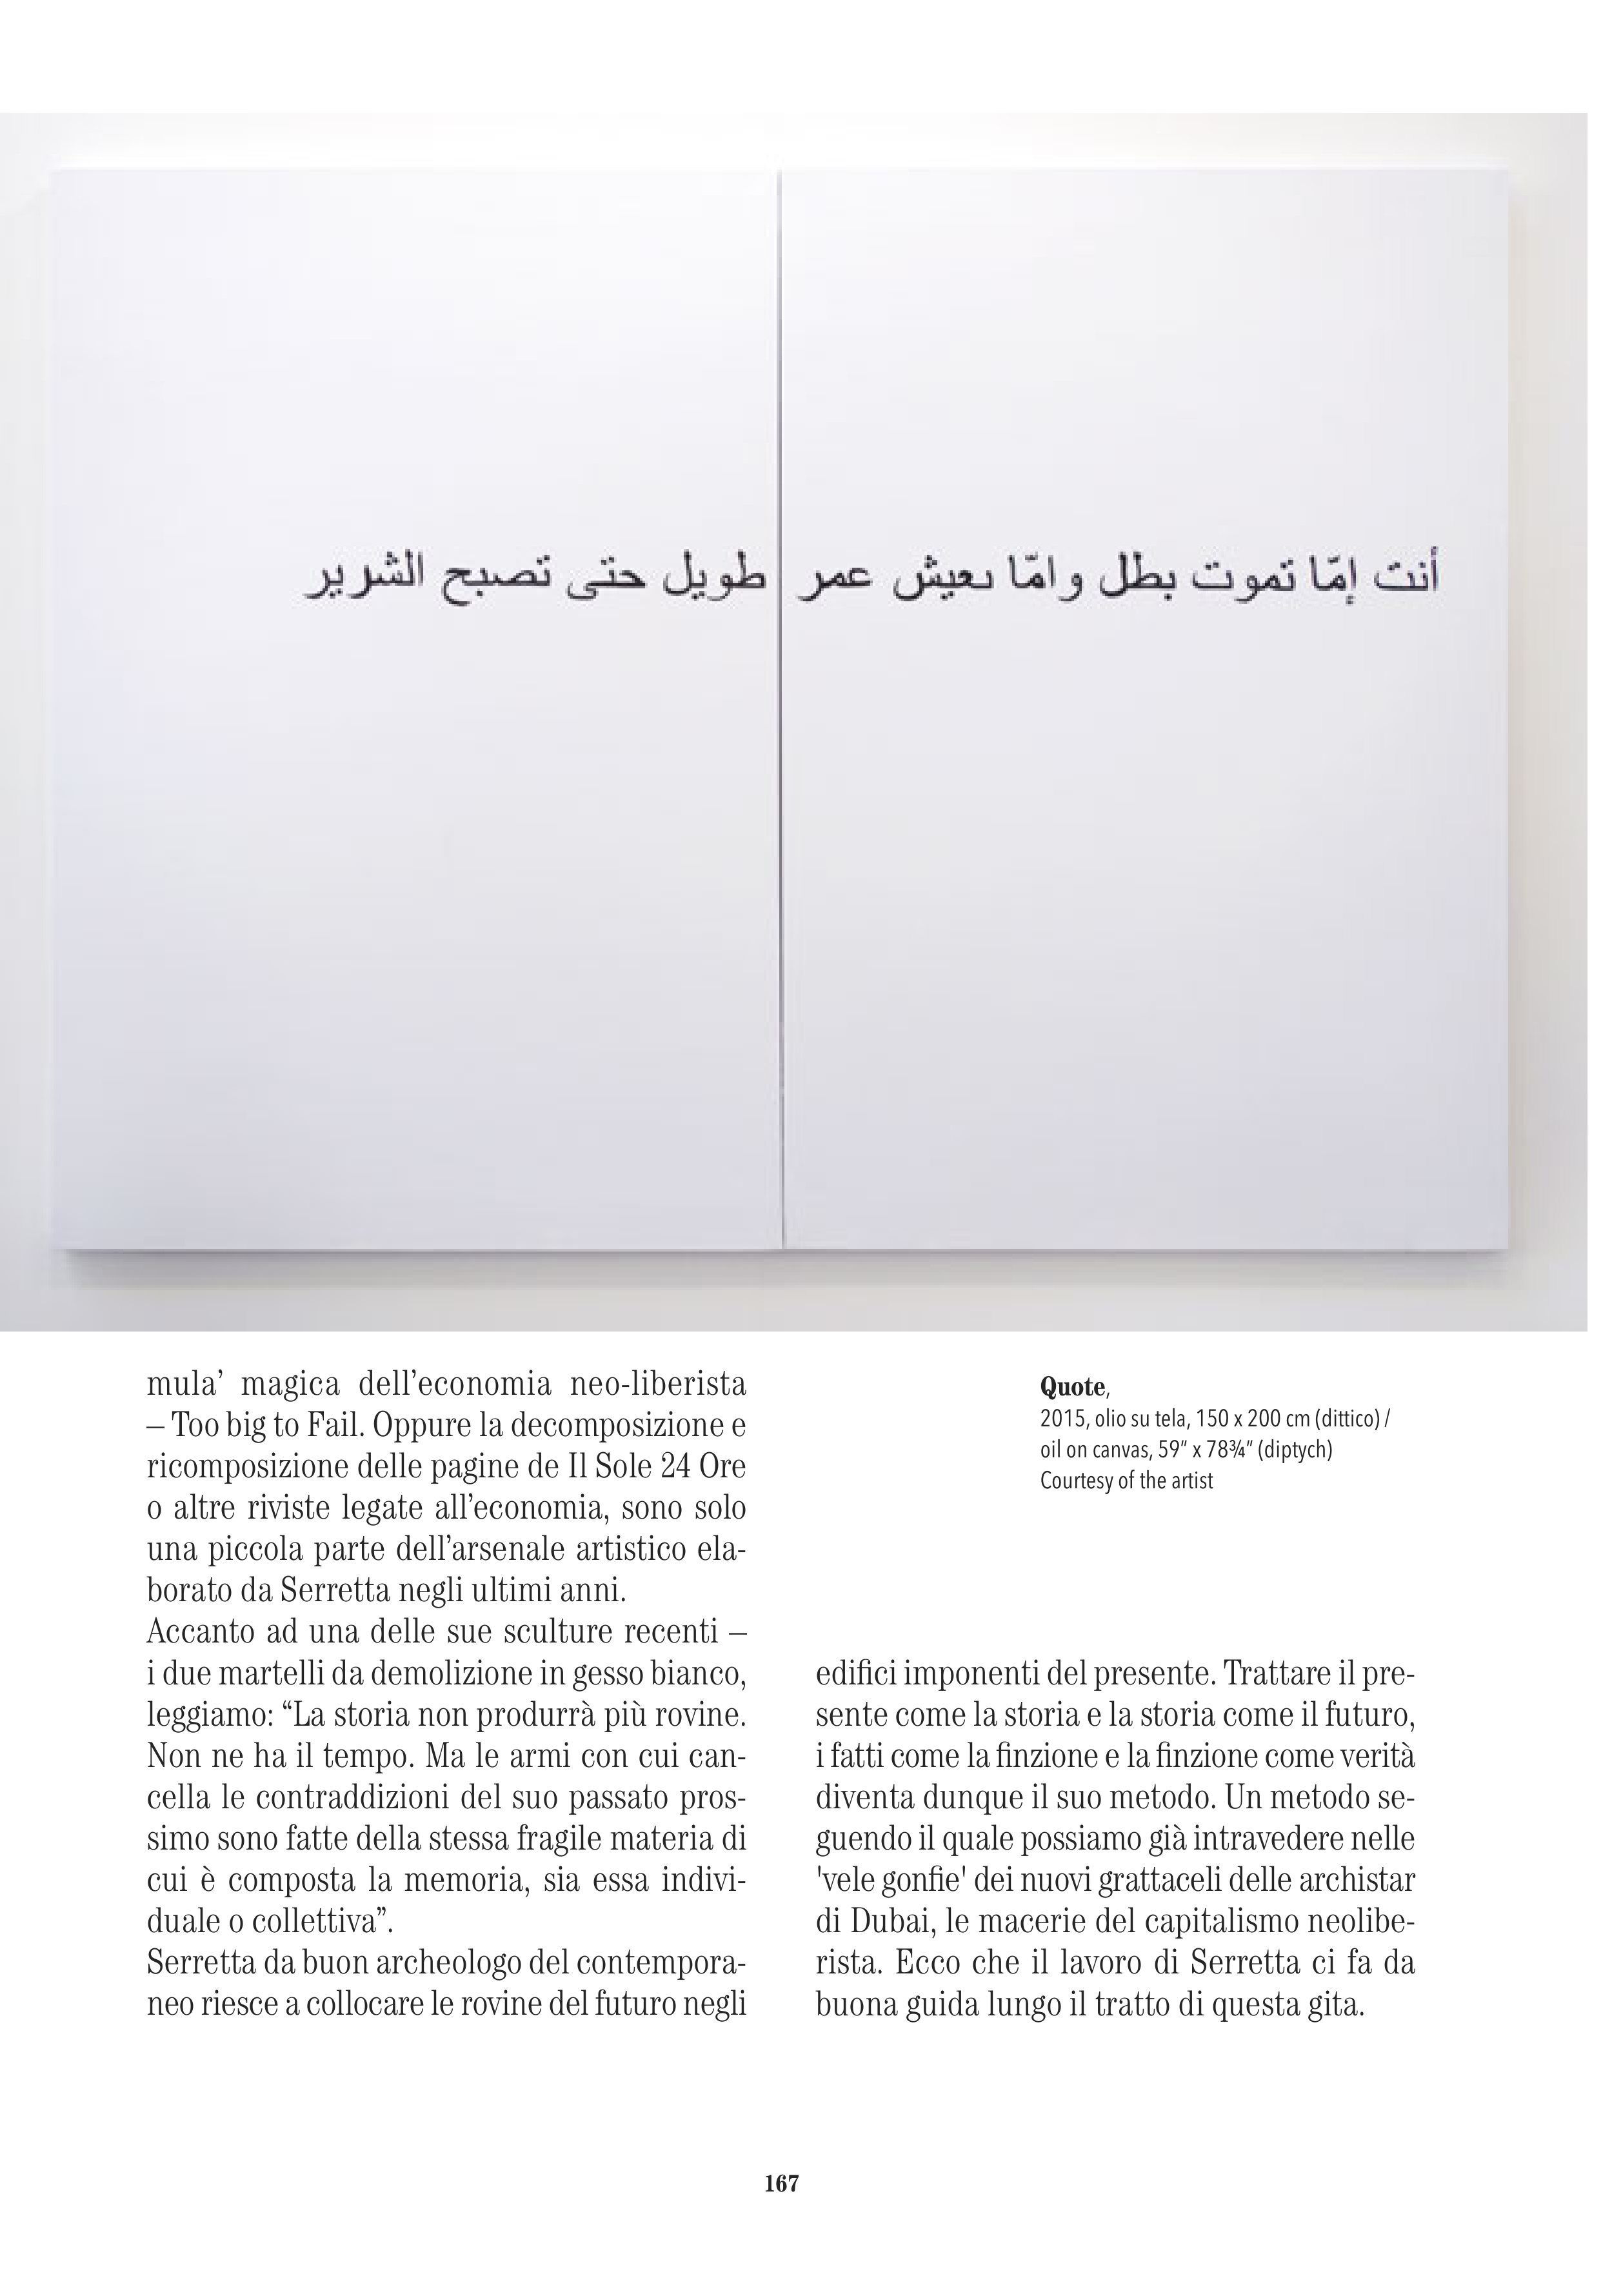 أنت إمّا تموت بطل وامّا تعيش عمر طويل حتى تصبح الشرير
mula’ magica dell’economia neo-liberista
– Too big to Fail. Oppure la decomposizione e
ricomposizione delle pagine de Il Sole 24 Ore
o altre riviste legate all’economia, sono solo
una piccola parte dell’arsenale artistico ela-
borato da Serretta negli ultimi anni.
Accanto ad una delle sue sculture recenti –
i due martelli da demolizione in gesso bianco,
leggiamo: “La storia non produrrà più rovine.
Non ne ha il tempo. Ma le armi con cui can-
cella le contraddizioni del suo passato pros-
simo sono fatte della stessa fragile materia di
cui è composta la memoria, sia essa indivi-
duale o collettiva”.
Serretta da buon archeologo del contempora-
neo riesce a collocare le rovine del futuro negli
Quote,
2015, olio su tela, 150 x 200 cm (dittico) /
oil on canvas, 59” x 78¾” (diptych)
Courtesy of the artist
edifici imponenti del presente. Trattare il pre-
sente come la storia e la storia come il futuro,
i fatti come la finzione e la finzione come verità
diventa dunque il suo metodo. Un metodo se-
guendo il quale possiamo già intravedere nelle
'vele gonfie' dei nuovi grattaceli delle archistar
di Dubai, le macerie del capitalismo neolibe-
rista. Ecco che il lavoro di Serretta ci fa da
buona guida lungo il tratto di questa gita.
167